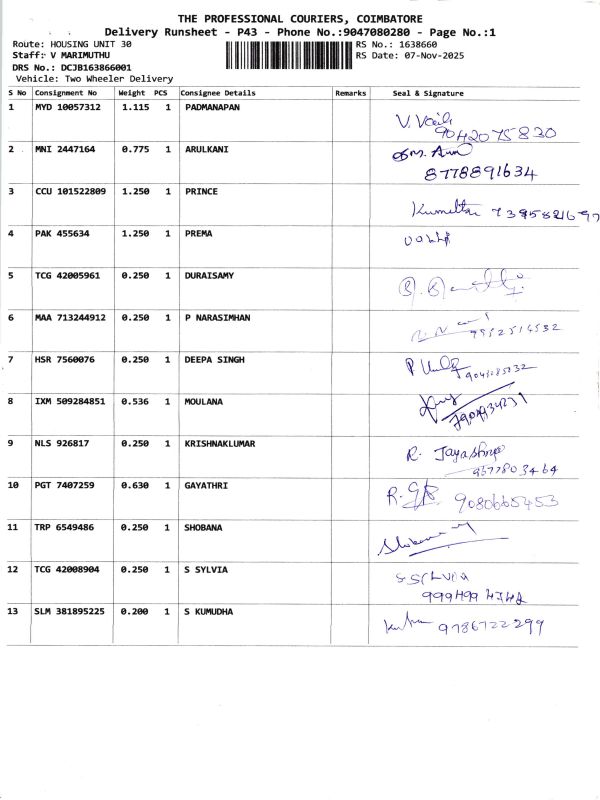 THE PROFESSIONAL COURIERS, COIMBATORE
Delivery Runsheet - P43 - Phone No.:9047080280 - Page No.:1
Route: HOUSING UNIT 30 RS No.: 1638660
Staff: V MARIMUTHU RS Date: 07-Nov-2025
DRS No.: DCJB163866001
Vehicle: Two Wheeler Delivery
S No Consignment No Weight PCS Consignee Details Remarks Seal & Signature
1 MYD 10057312 1.115 1 PADMANAPAN
9042075830
2 MNI 2447164 0.775 1 ARULKANI
8778891634
3 CCU 101522809 1.250 1 PRINCE
4 PAK 455634 1.250 1 PREMA
5 TCG 42005961 0.250 1 DURAISAMY
6 MAA 713244912 0.250 1 P NARASIMHAN
7 HSR 7560076 0.250 1 DEEPA SINGH
8 IXM 509284851 0.536 1 MOULANA
9 NLS 926817 0.250 1 KRISHNAKLUMAR
R. Jayashree
9677803464
10 PGT 7407259 0.630 1 GAYATHRI
9080665453
11 TRP 6549486 0.250 1 SHOBANA
12 TCG 42008904 0.250 1 S SYLVIA
S SYLVIA
13 SLM 381895225 0.200 1 S KUMUDHA
9786722299